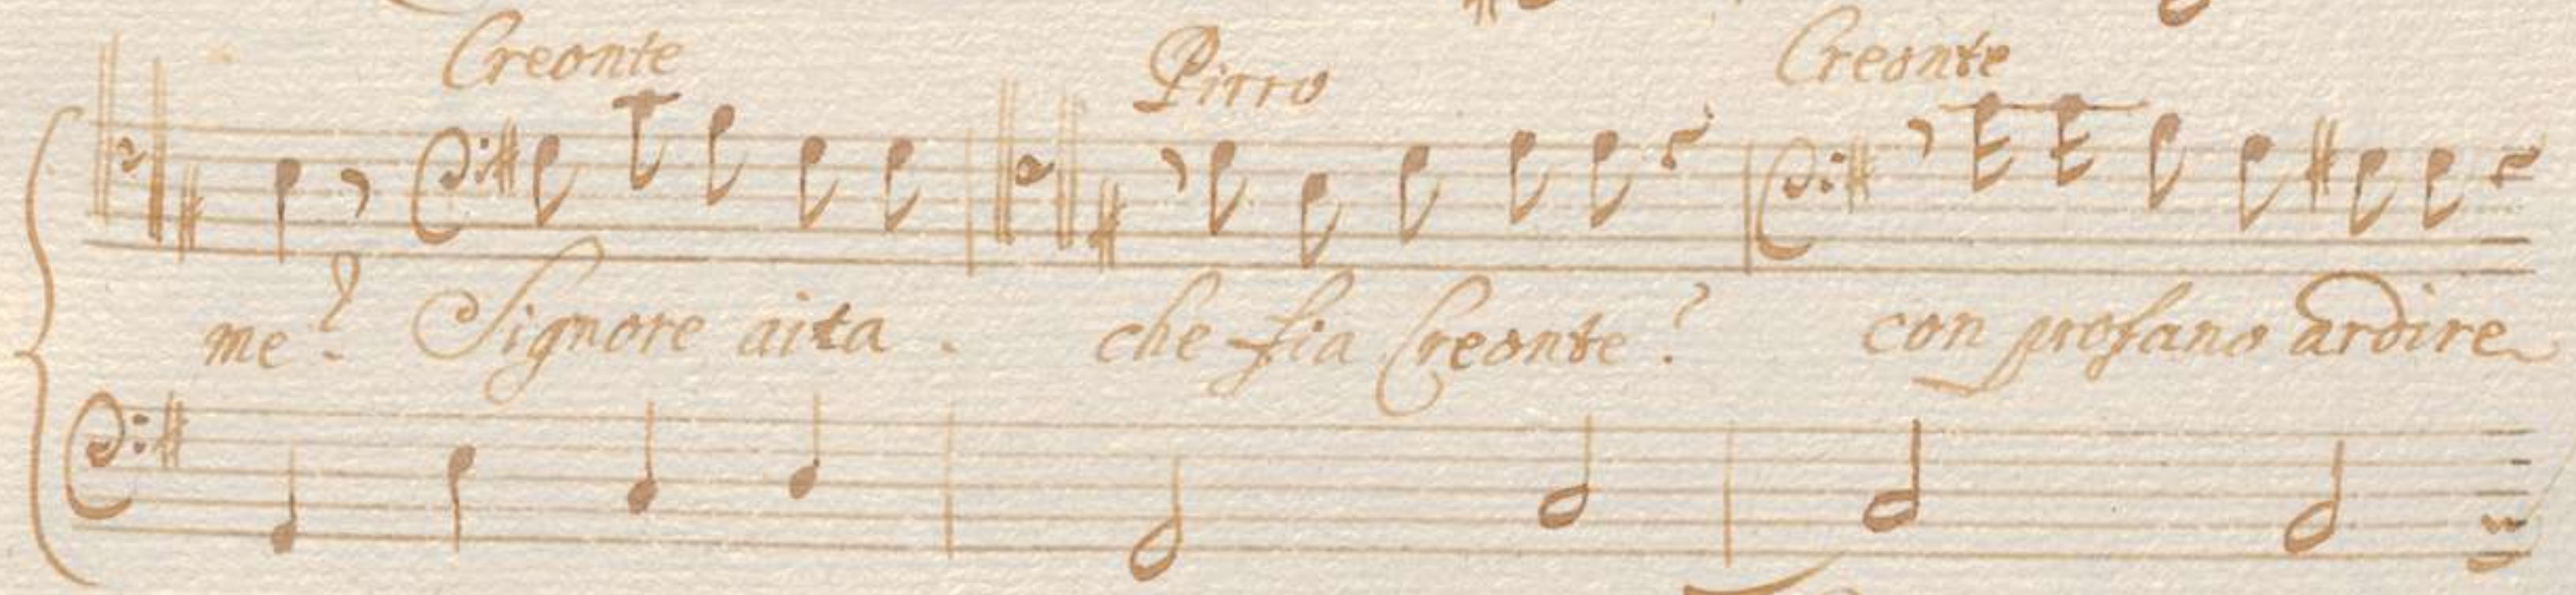 Creonte Pirro Creonte
me? Signore aita. che fia Creonte? con profano ardire